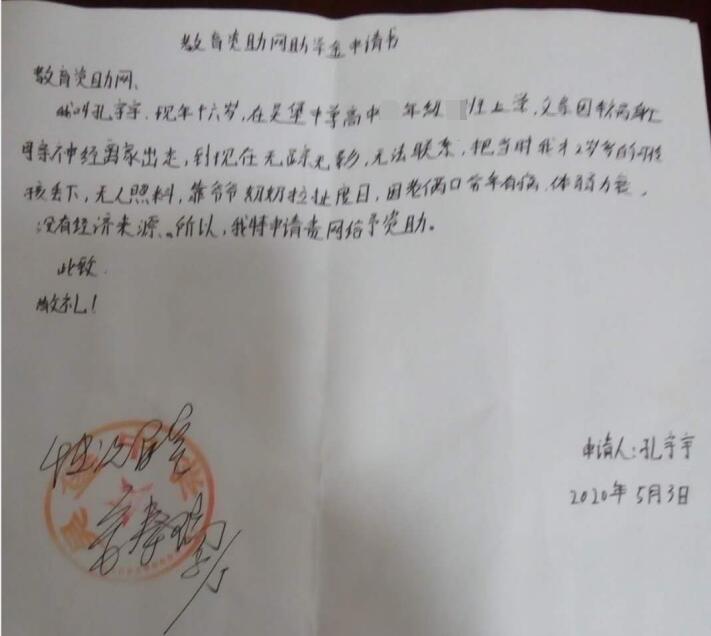 教育资助网助学金申请书
教育资助网、
我叫孔宇宇.现年十六岁,在吴堡中学高中 年级 班上学,父亲因车祸身亡
母亲神经离家出走,到现在无踪无影,无法联系,把当时我才2岁多的
孩丢下,无人照料,靠爷爷奶奶拉扯度日,因老俩口常年有病,体弱力衰,
没有经济来源。所以,我特申请贵网给予资助。
此致
敬礼!
情况属实
申请人:孔宇宇
2020年5月3日